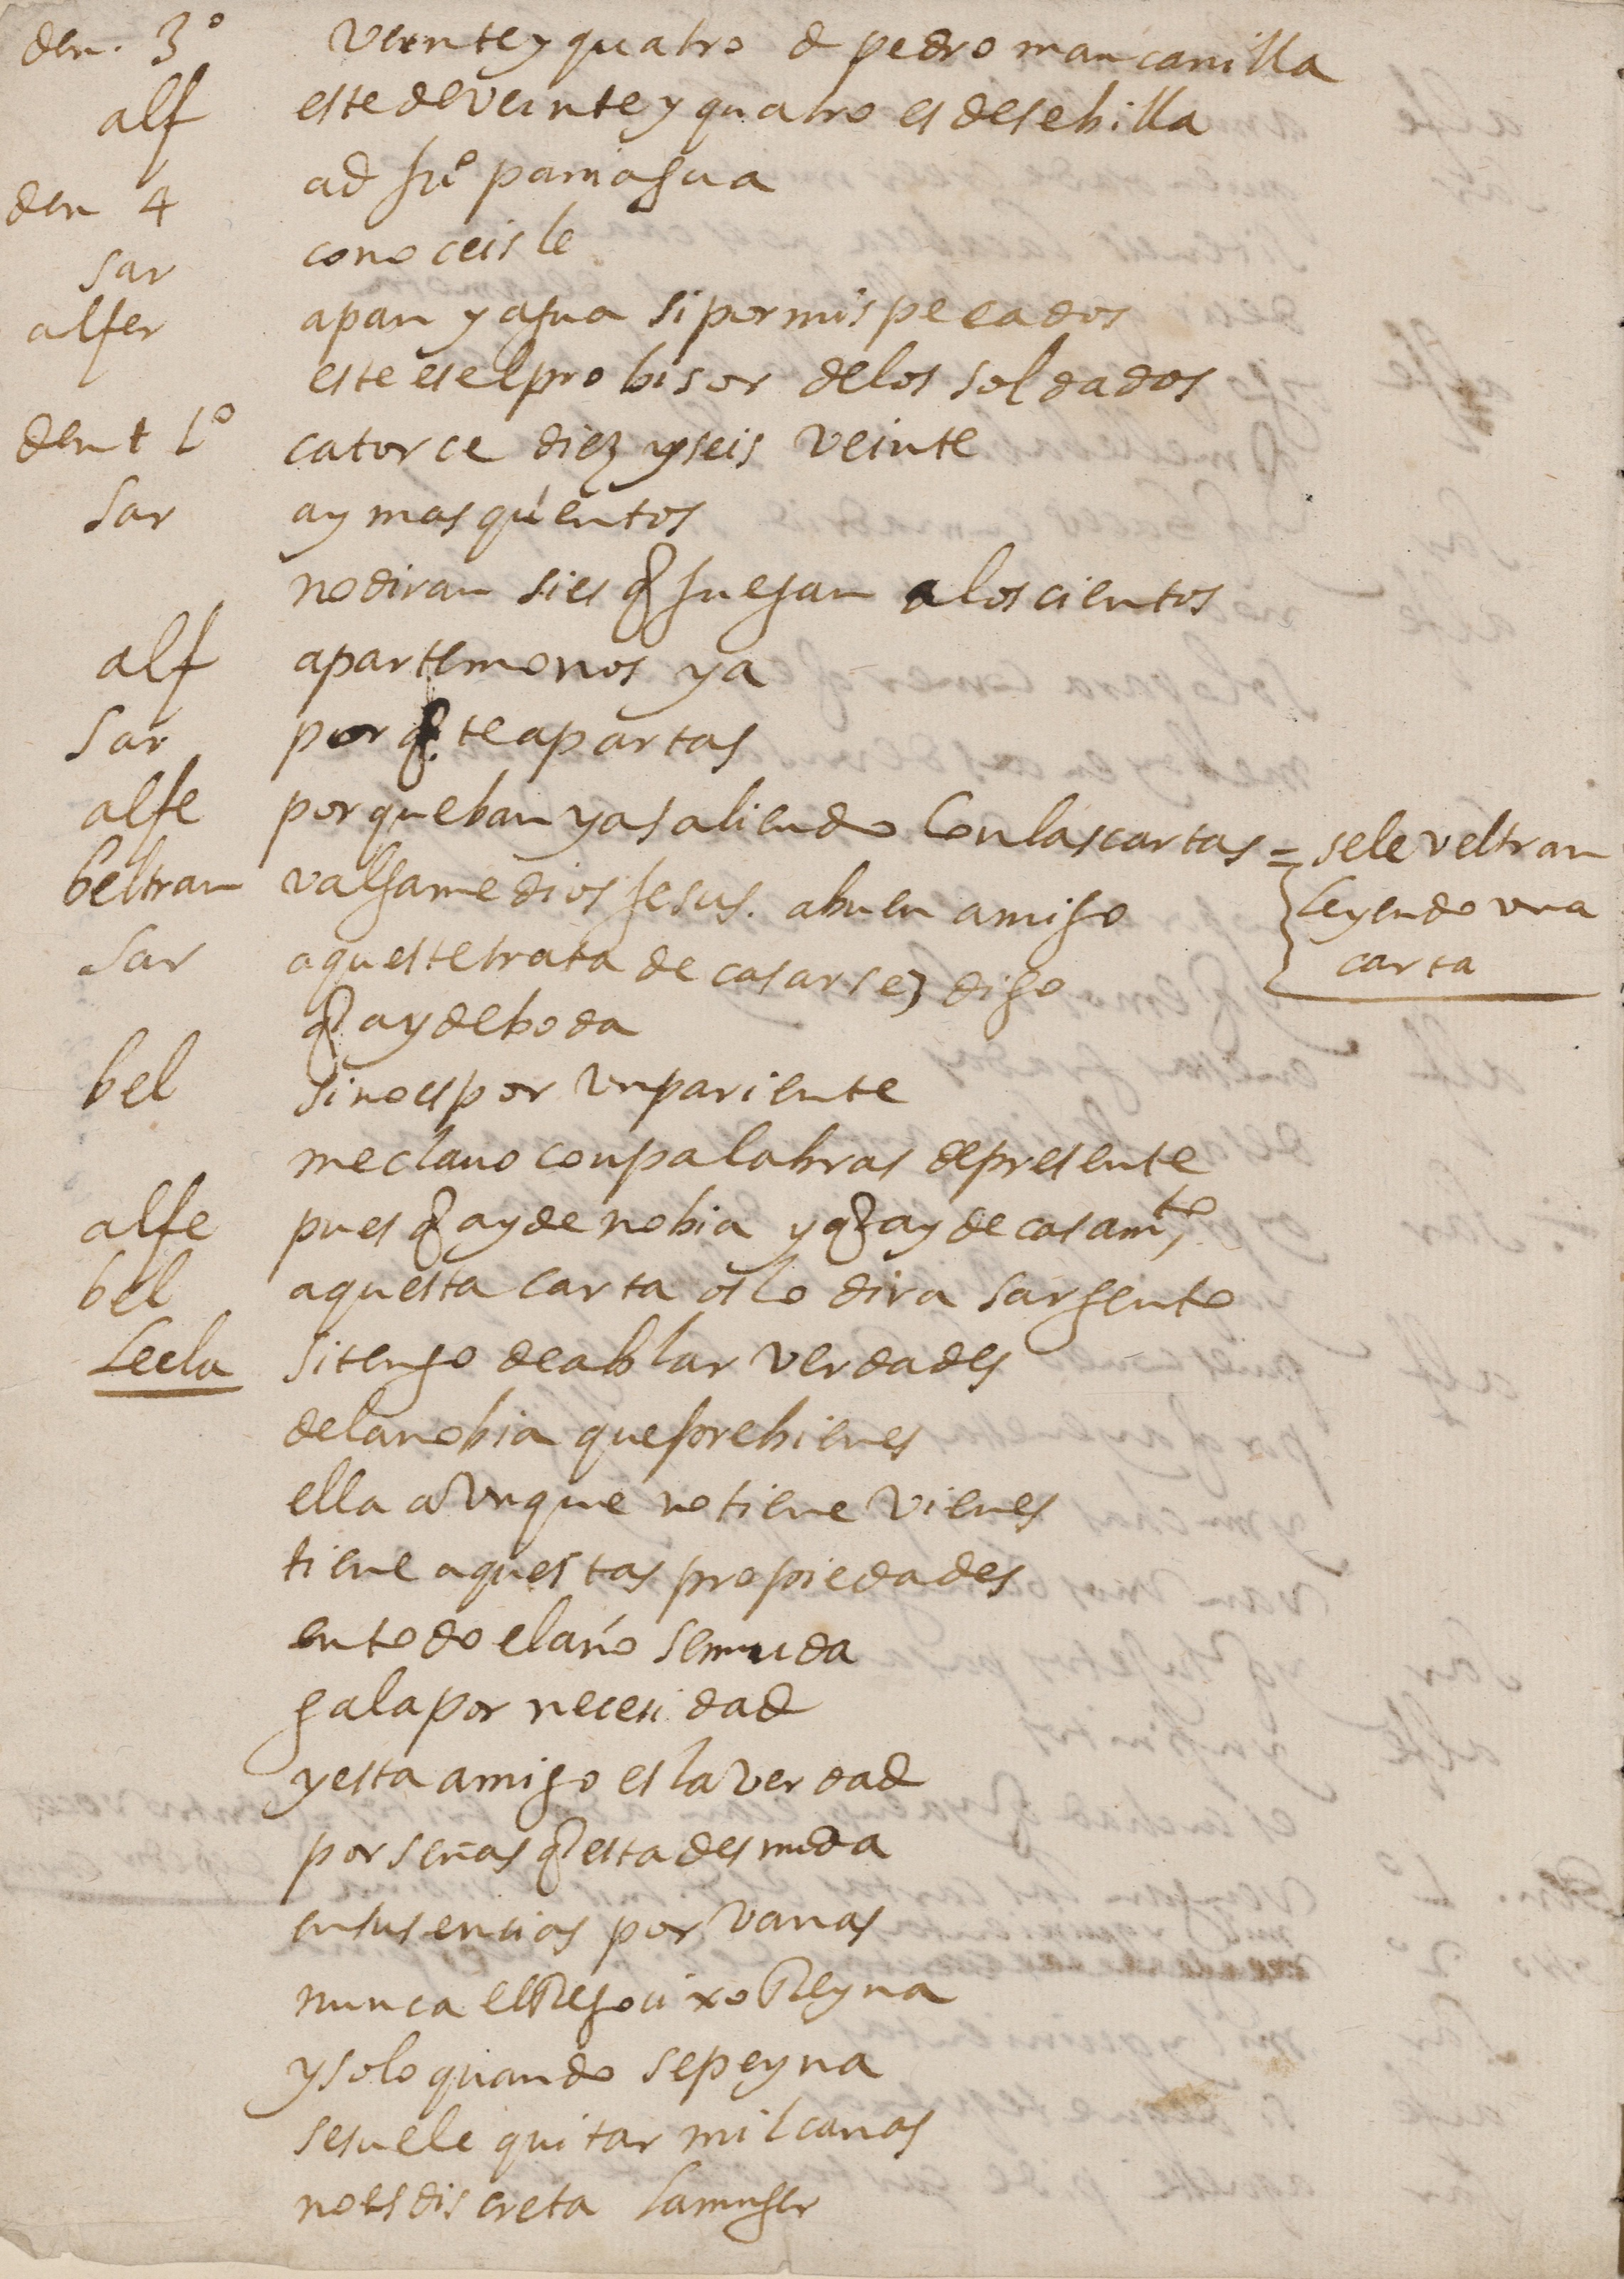 den. 3º veinte y quatro d pedro mancanilla
alf este de veinte y quatro es de sebilla
den 4 ad juº paniagua
sar conoceis le
alfer apan y agua si por mis pecados
este es el probisor de los soldados
dent 1º catorce diez y seis veinte
sar ay mas quentos
no diran si es q juegan a los cientos
alf apartemonos ya
sar por q te apartas
alfe porque ban ya saliendo Con las cartas = sele veltran
beltran valgame dios jesus. a buen amigo leyendo una
sar aqueste trata de casarse, digo carta
q ay de boda
bel sino es por un pariente
me clavo con palabras de presente
alfe pues q ay de nobia y q ay de casamto,
bel aquesta carta os lo dira sargento
Leela si tengo de ablar verdades
de la nobia que prebienes
ella aunque no tiene vienes
tiene aquestas propiedades
en todo el año se muda
gala por necesidad
y esta amigo es la verdad
por señas q esta desnuda
en sus encias por vanas
nunca el Regocixo Reyna
y solo quando se peyna
se suele quitar mil canas
no es discreta la muger